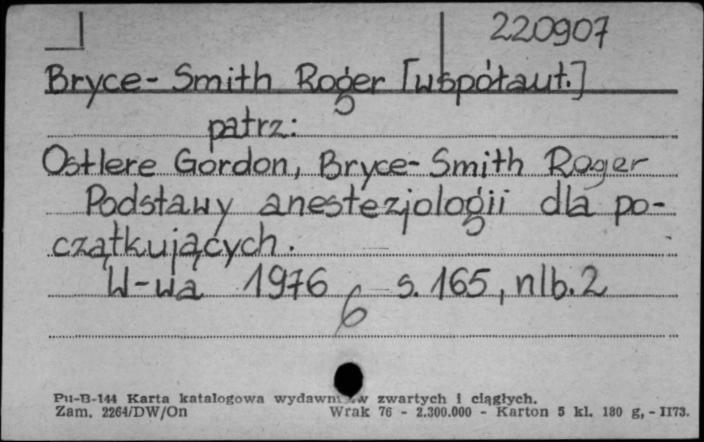 220907
Bryce-Smith Roger [współaut.]
patrz:
Ostlere Gordon, Bryce-Smith Roger
Podstawy anestezjologii dla po-
czątkujących.
W-wa 1976 s. 165, nlb. 2
6
Pu-B-144 Karta katalogowa wydawnictw zwartych i ciągłych.
Zam. 2264/DW/On Wrak 76 - 2.300.000 - Karton 5 kl. 180 g, - II73.